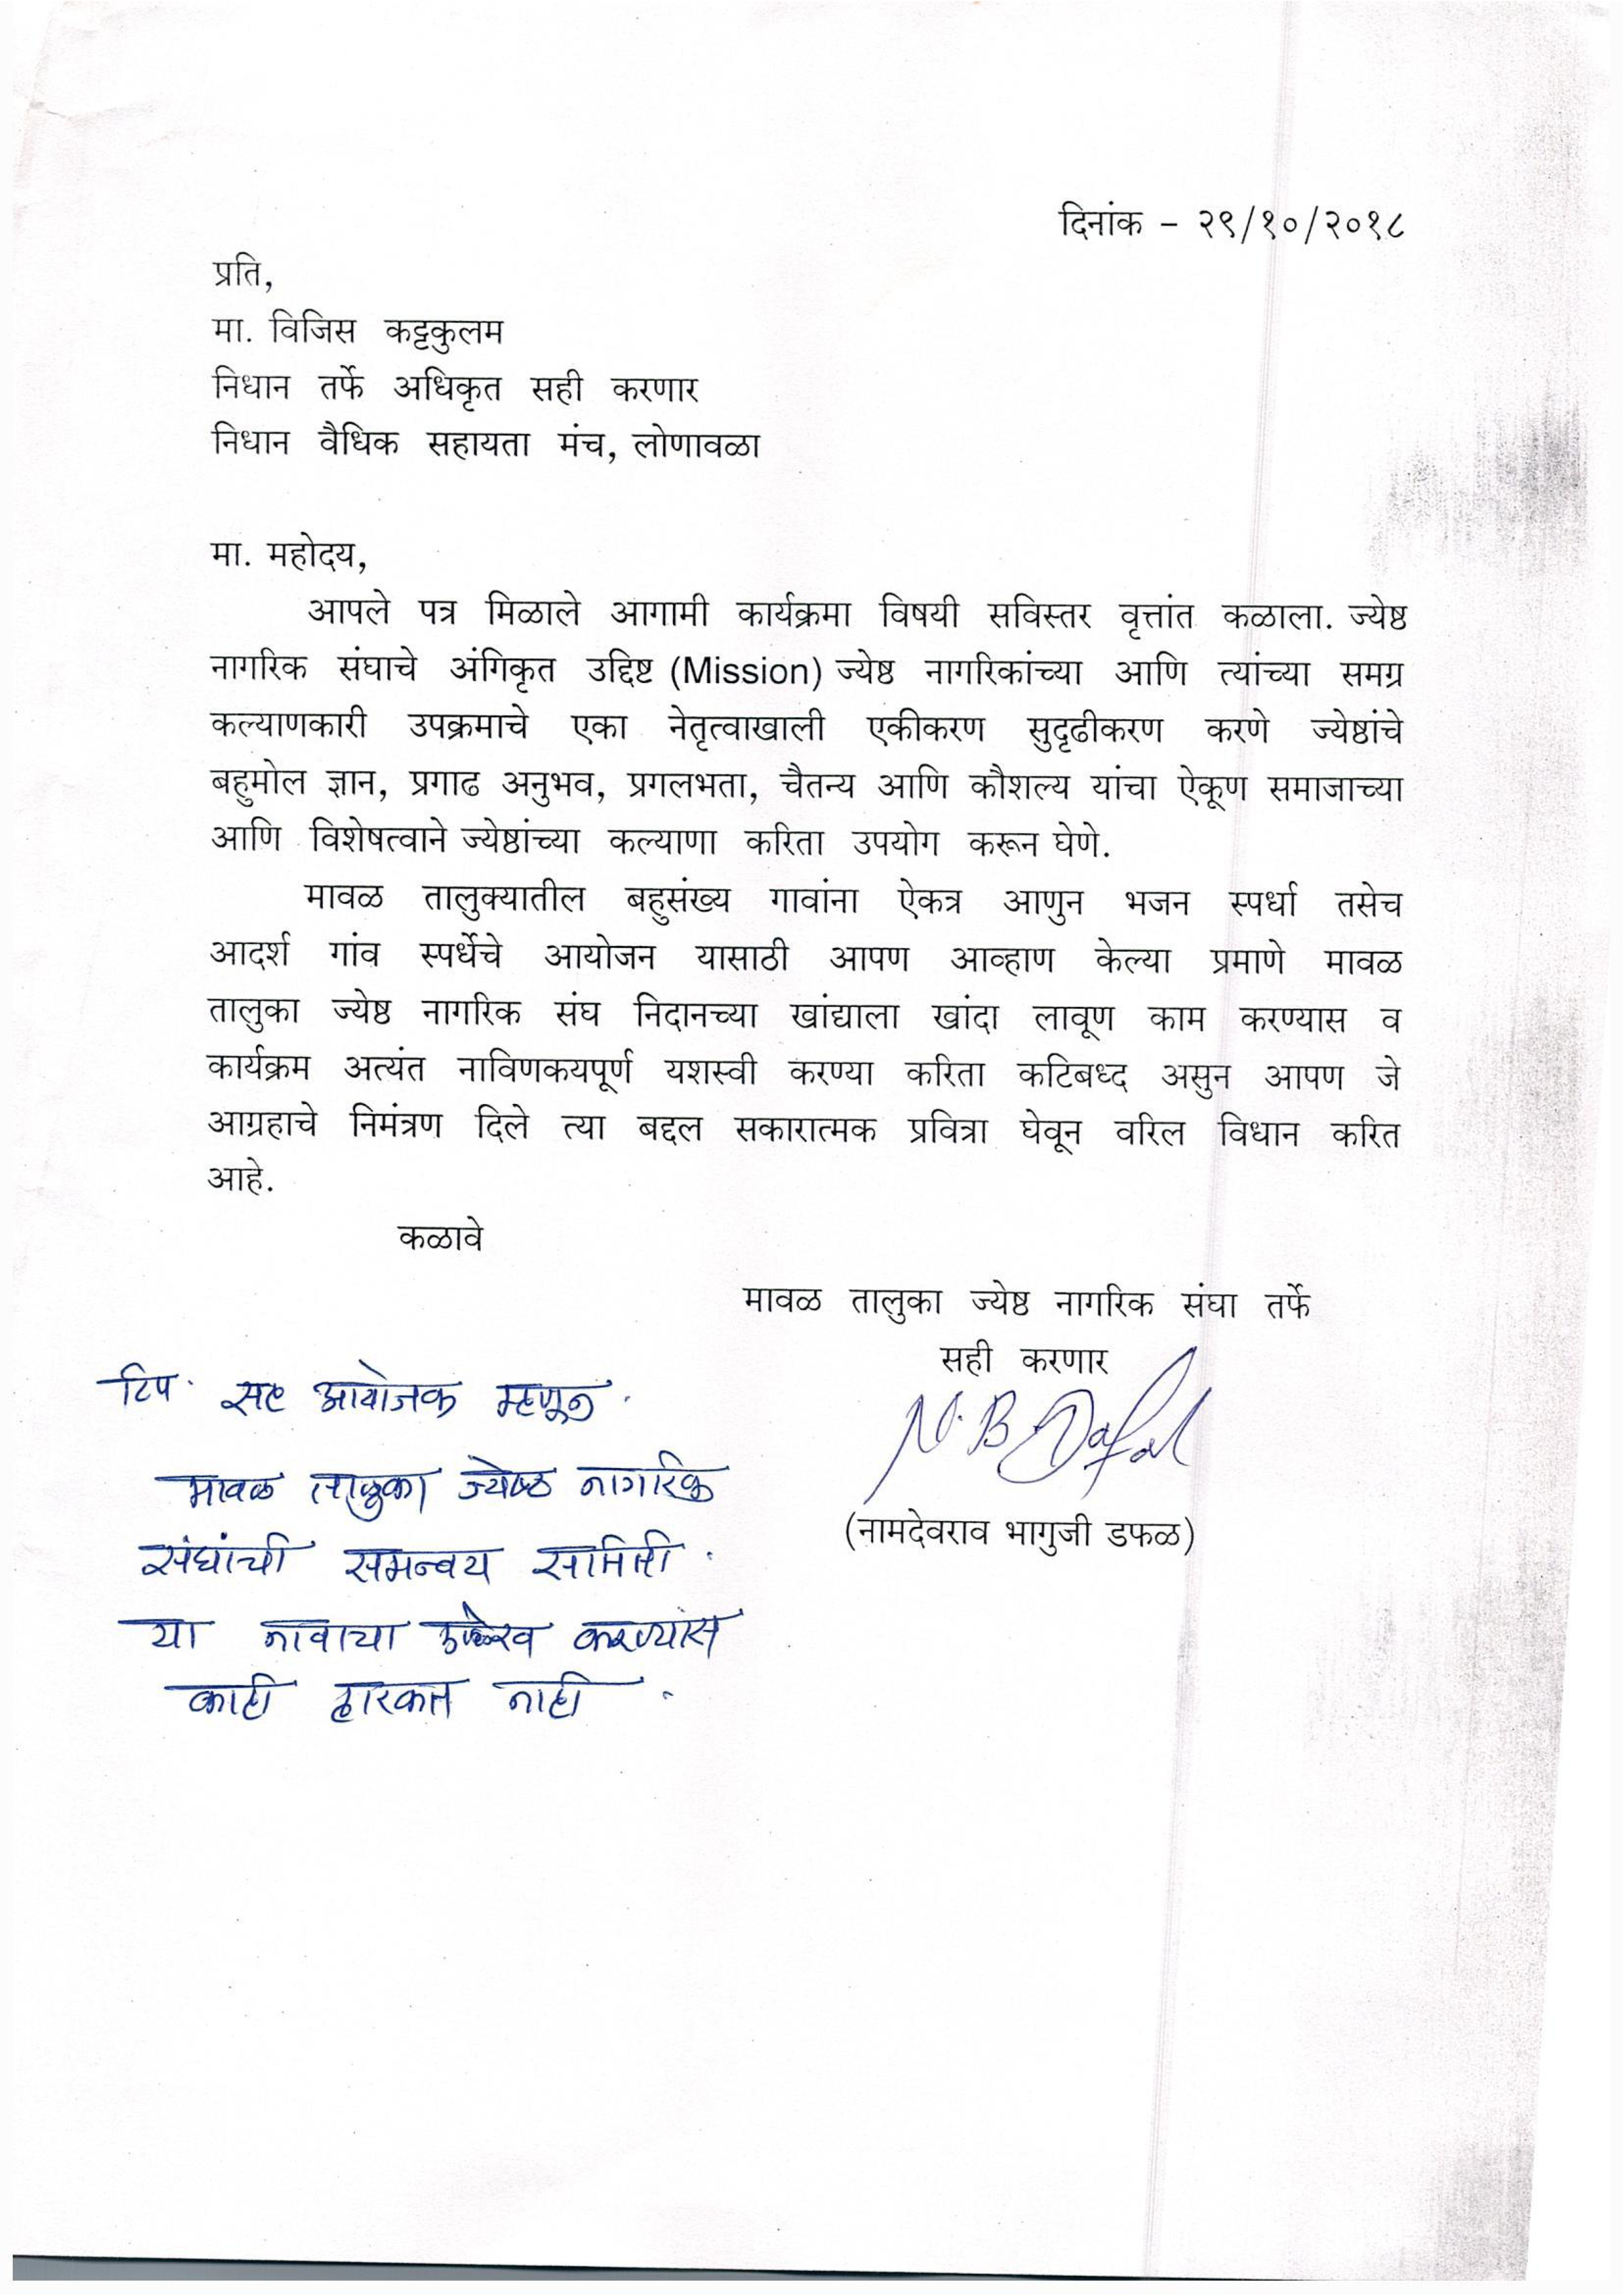 दिनांक - २९/१०/२०१८
प्रति,
मा. विजिस कट्टकुलम
निधान तर्फे अधिकृत सही करणार
निधान वैधिक सहायता मंच, लोणावळा
मा. महोदय,
आपले पत्र मिळाले आगामी कार्यक्रमा विषयी सविस्तर वृत्तांत कळाला. ज्येष्ठ
नागरिक संघाचे अंगिकृत उद्दिष्ट (Mission) ज्येष्ठ नागरिकांच्या आणि त्यांच्या समग्र
कल्याणकारी उपक्रमाचे एका नेतृत्वाखाली एकीकरण सुदृढीकरण करणे ज्येष्ठांचे
बहुमोल ज्ञान, प्रगाढ अनुभव, प्रगलभता, चैतन्य आणि कौशल्य यांचा ऐकूण समाजाच्या
आणि विशेषत्वाने ज्येष्ठांच्या कल्याणा करिता उपयोग करून घेणे.
मावळ तालुक्यातील बहुसंख्य गावांना ऐकत्र आणुन भजन स्पर्धा तसेच
आदर्श गांव स्पर्धेचे आयोजन यासाठी आपण आव्हाण केल्या प्रमाणे मावळ
तालुका ज्येष्ठ नागरिक संघ निदानच्या खांद्याला खांदा लावूण काम करण्यास व
कार्यक्रम अत्यंत नाविणकयपूर्ण यशस्वी करण्या करिता कटिबध्द असुन आपण जे
आग्रहाचे निमंत्रण दिले त्या बद्दल सकारात्मक प्रवित्रा घेवून वरिल विधान करित
आहे.
कळावे
मावळ तालुका ज्येष्ठ नागरिक संघा तर्फे
सही करणार
N. B Dafal
(नामदेवराव भागुजी डफळ)
टिप. सह आयोजक म्हणून.
मावळ तालुका ज्येष्ठ नागरिक
संघांची समन्वय समिती.
या नावाचा उल्लेख करण्यास
काही हरकत नाही.